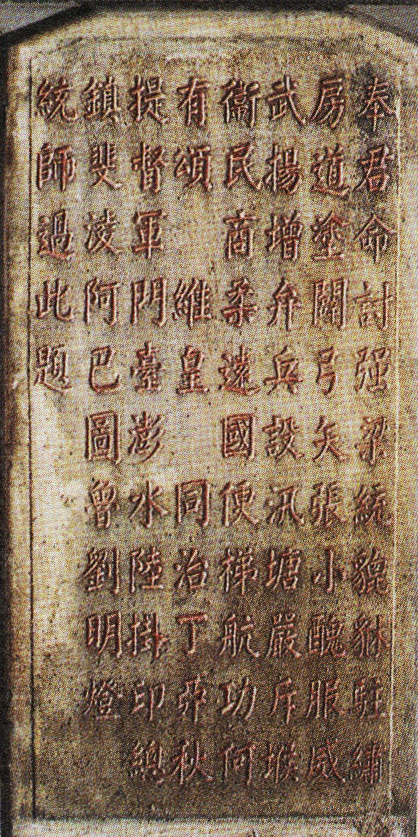 奉君命討强梁統貔貅駐繡
房道塗闢弓矢張小醜服威
武揚增弁兵設汛塘嚴斥堠
衞民商柔遠國便梯航功何
有頌 維皇 同治丁丣秋
提督軍門臺澎水陸掛印總
鎮斐凌阿巴圖曾劉明燈
統師過此題